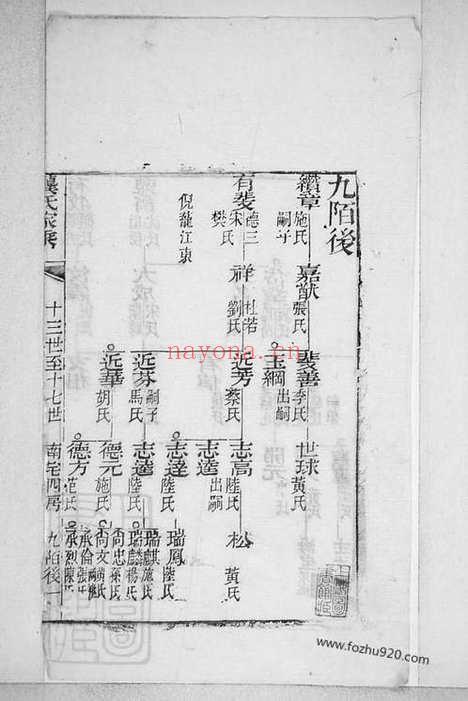 九陌後
纘章 施氏 嗣子
嘉猷 張氏
裴善 李氏
世球 黃氏
玉綱 出嗣
有斐 德三 宋氏 樊氏
祥 杜若 劉氏
近芳 蔡氏
志高 陸氏
松 黃氏
倪龍江東
志遠 出嗣
志達 陸氏
瑞鳳 陸氏
近芬 嗣子 馬氏
志遠 陸氏
瑞麒 施氏
瑞麟 楊氏
近華 胡氏
德元 施氏
尚忠 孫氏
尚文 黃氏
德方 范氏
承倫 張氏
承烈 陳氏
氏家乘
十三世至十七世
南宅四房
九陌後一
nayona.cn
www.fozhu920.com